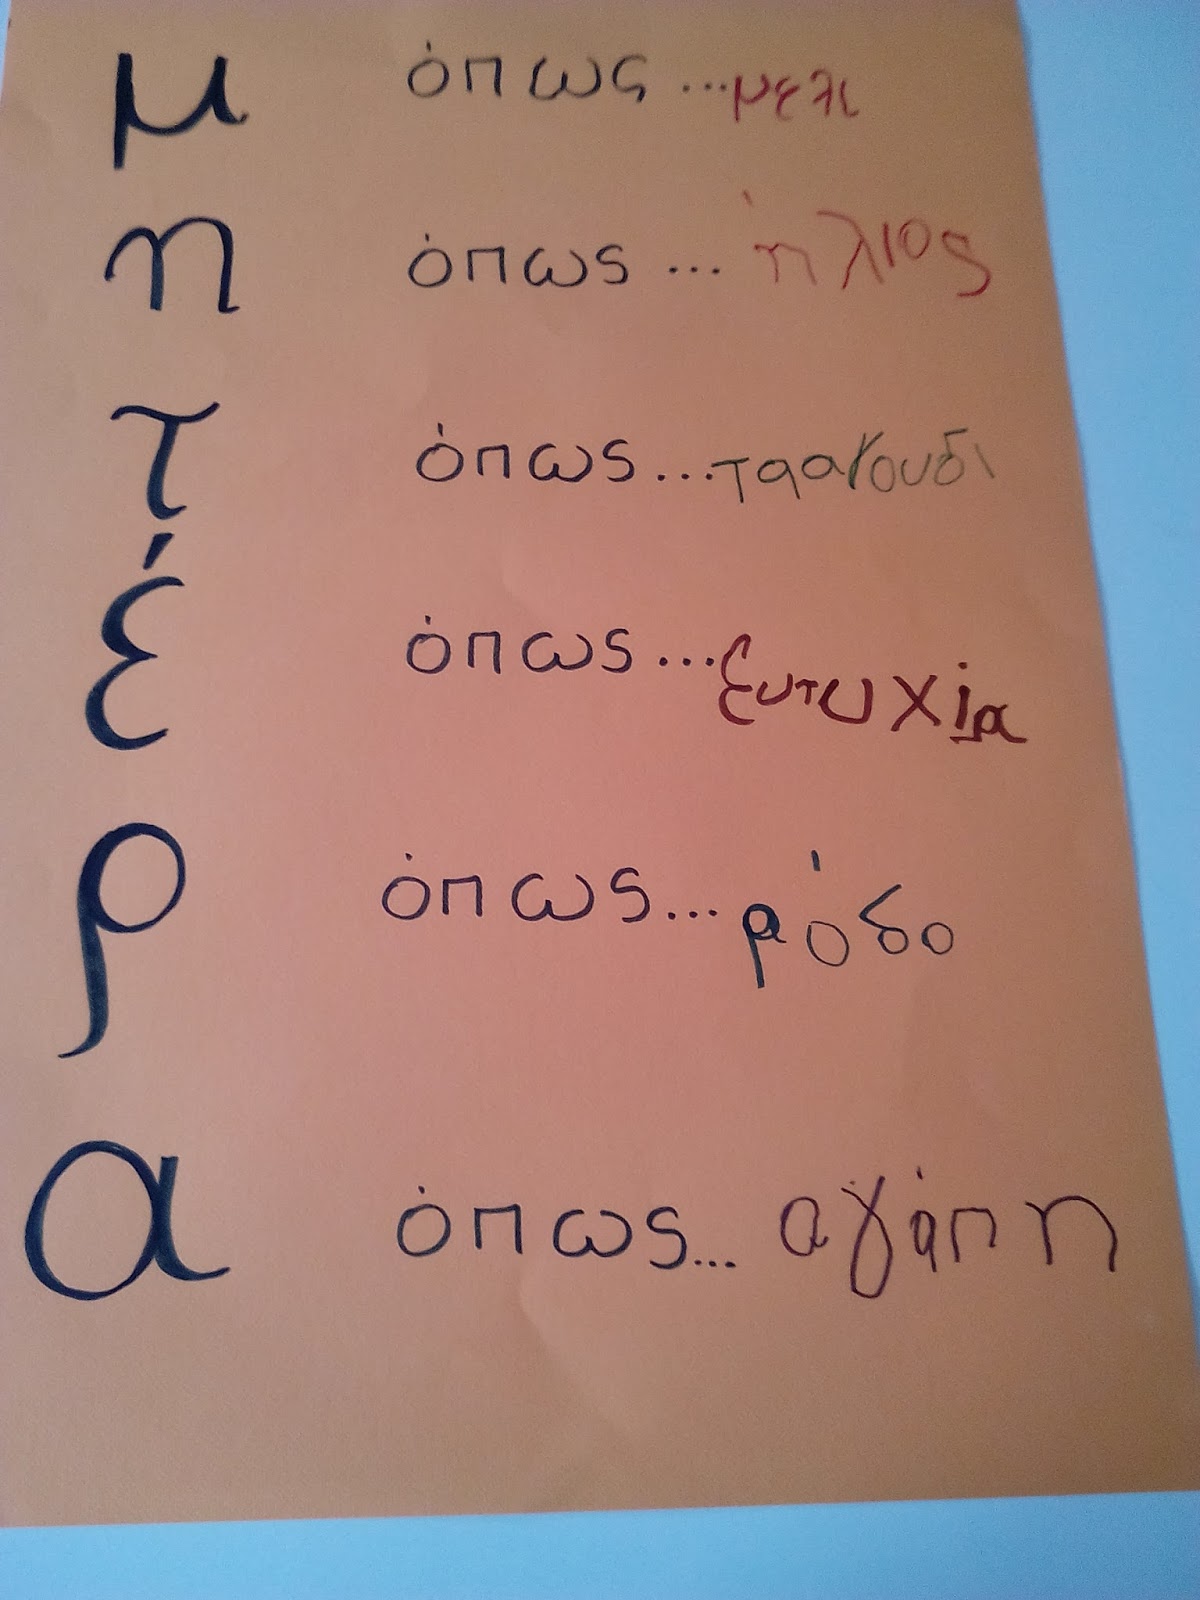 μ όπως ...μελι
η όπως ... ήλιος
τ όπως ...τραγουδι
έ όπως ...ευτυχία
ρ όπως ...ρόδο
α όπως ... αγάπη